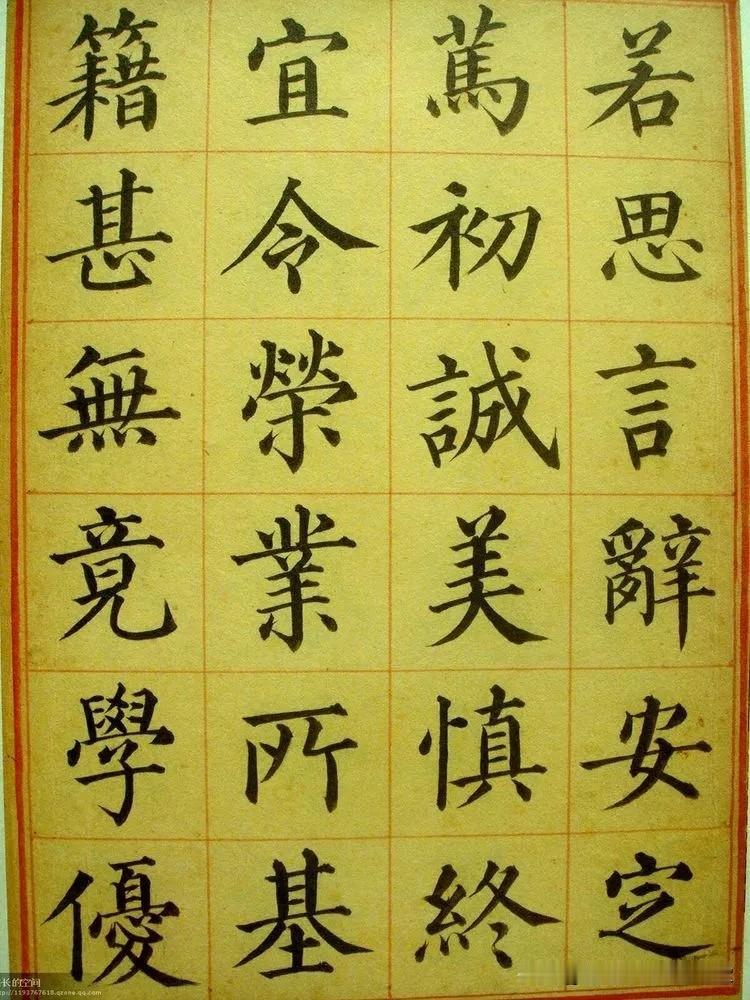 若思言辭安定
篤初誠美慎終
宜令榮業所基
籍甚無竟學優
长的空间
http://1193767618.qzone.qq.com